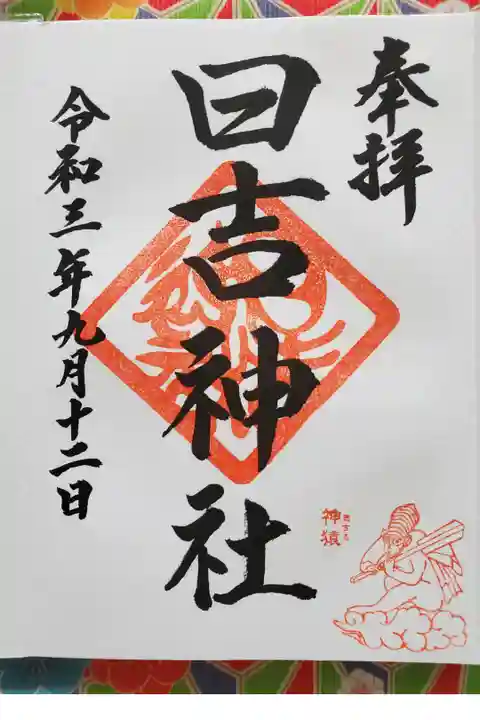 奉拝
日吉神社
令和三年九月十二日
神猿